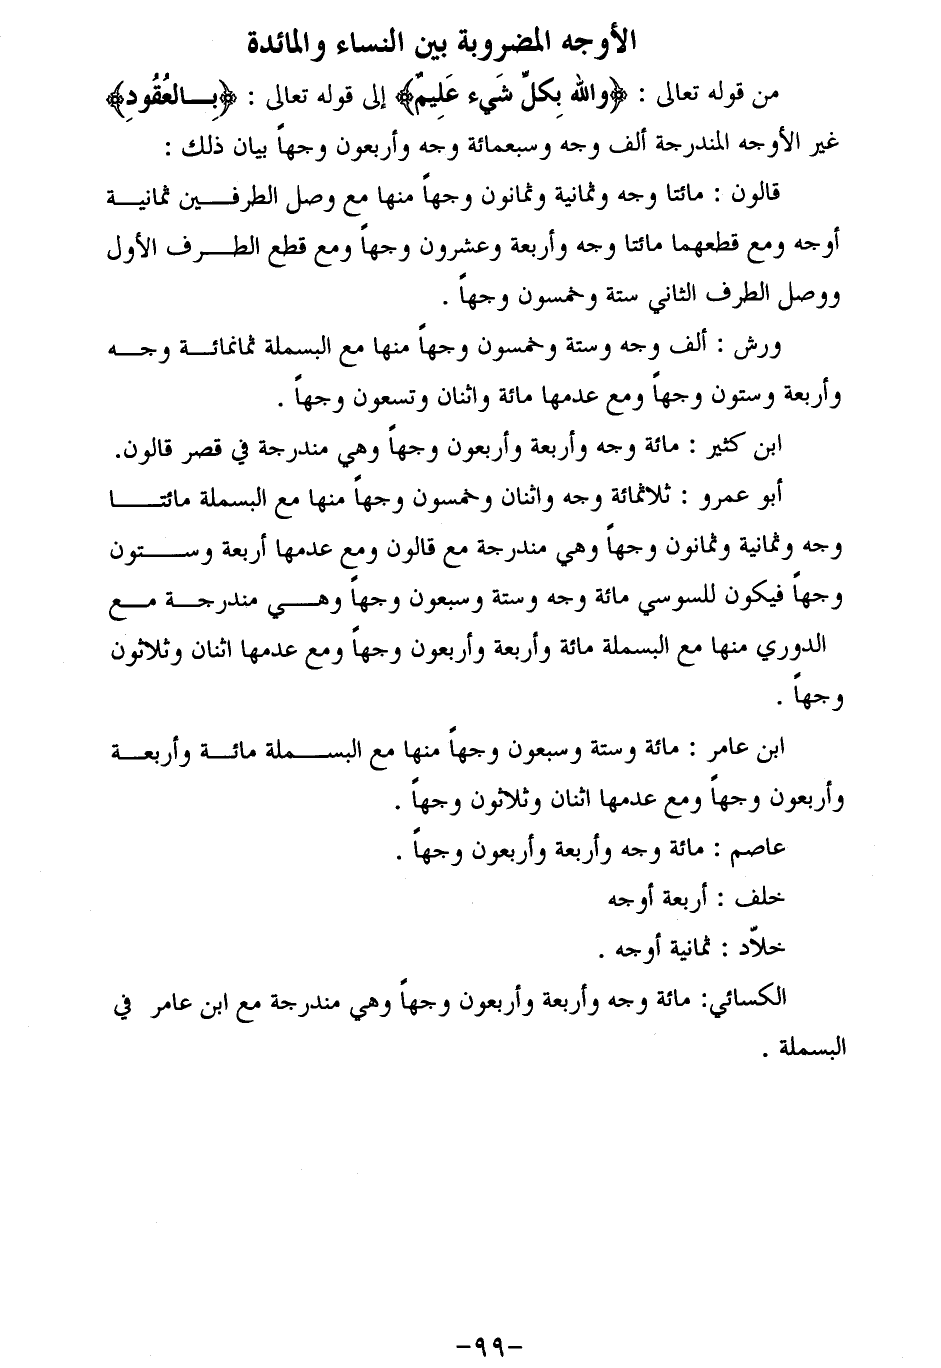 الأوجه المضروبة بين النساء والمائدة
من قوله تعالى : ﴿والله بِكلِّ شَيء عَلِيمٌ﴾ إلى قوله تعالى : ﴿بِـالعُقُودِ﴾
غير الأوجه المندرجة ألف وجه وسبعمائة وجه وأربعون وجهاً بيان ذلك :
قالون : مائتا وجه وثمانية وثمانون وجهاً منها مع وصل الطرفـين ثمانيـة
أوجه ومع قطعهما مائتا وجه وأربعة وعشرون وجهاً ومع قطع الطـرف الأول
ووصل الطرف الثاني ستة وخمسون وجهاً .
ورش : ألف وجه وستة وخمسون وجهاً منها مع البسملة ثمانمائـة وجـه
وأربعة وستون وجهاً ومع عدمها مائة واثنان وتسعون وجهاً .
ابن كثير : مائة وجه وأربعة وأربعون وجهاً وهي مندرجة في قصر قالون.
أبو عمرو : ثلاثمائة وجه واثنان وخمسون وجهاً منها مع البسملة مائتـا
وجه وثمانية وثمانون وجهاً وهي مندرجة مع قالون ومع عدمها أربعة وسـتون
وجهاً فيكون للسوسي مائة وجه وستة وسبعون وجهاً وهـي مندرجـة مـع
الدوري منها مع البسملة مائة وأربعة وأربعون وجهاً ومع عدمها اثنان وثلاثون
وجهاً .
ابن عامر : مائة وستة وسبعون وجهاً منها مع البسـملة مائـة وأربعـة
وأربعون وجهاً ومع عدمها اثنان وثلاثون وجهاً .
عاصم : مائة وجه وأربعة وأربعون وجهاً .
خلف : أربعة أوجه
خلاّد : ثمانية أوجه .
الكسائي: مائة وجه وأربعة وأربعون وجهاً وهي مندرجة مع ابن عامر في
البسملة .
-٩٩-